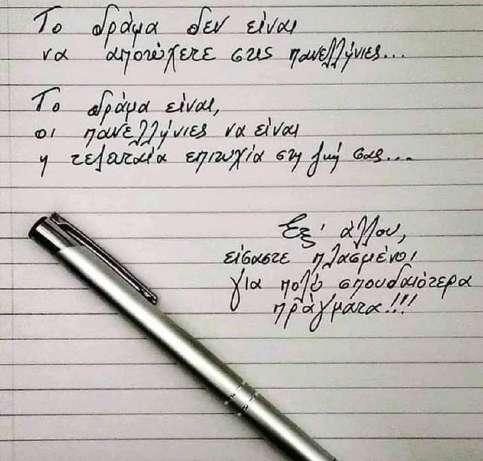 Το δράμα δεν είναι
να αποτύχετε στις πανελλήνιες...
Το δράμα είναι,
οι πανελλήνιες να είναι
η τεραταία επιτυχία στη ζωή σας...
Εξ' άλλου,
είσαστε πλασμένοι
για πολύ σπουδαιότερα
πράγματα!!!